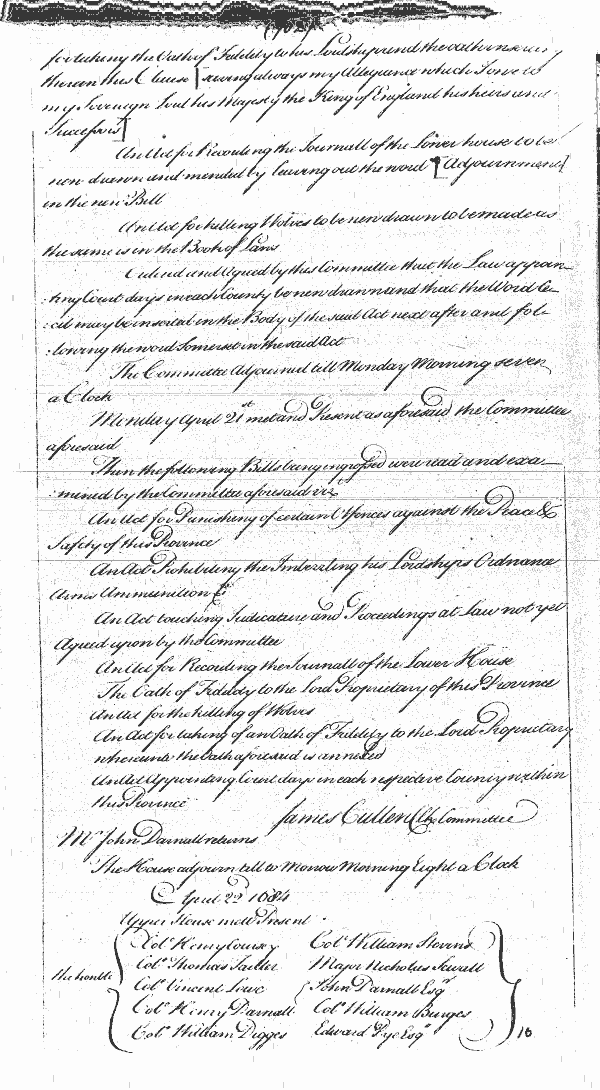 for taking the Oath of Fidelity to his Lordship and the oath inserting
therein this Clause [saveing always my Allegiance which I owe to
my Sovereign Lord his Majesty the King of England his heirs and
Successors]
An Act for Recording the Journall of the Lower house to be
new drawn and mended by leaving out the word [Adjournment]
in the new Bill
An Act for killing Wolves to be new drawn to be made as
the same is in the Book of Laws
Ordered and Agreed by this Committee that the Law appoin-
:ting Court days in each County be new drawn and that the Word Ce-
:cil may be inserted in the Body of the said Act next after and fol-
:lowing the word Somerset in the said Act
The Committee Adjourned till Monday Morning seven
a Clock
Monday April 21st met and Present as aforesaid the Committee
aforesaid
Then the following Bills being ingrossed were read and exa-
:mined by the Committee aforesaid viz
An Act for Punishing of certain Offences against the Peace &
Safety of this Province
An Act Prohibiting the Imbezling his Lordships Ordnance
Arms Ammunition &c
An Act touching Judicature and Proceedings at Law not yet
Agreed upon by the Committee
An Act for Recording the Journall of the Lower House
The Oath of Fidelity to the Lord Proprietary of this Province
An Act for the killing of Wolves
An Act for taking of an Oath of Fidelity to the Lord Proprietary
whereunto the Oath aforesaid is annexed
An Act Appointing Court days in each respective County within
this Province
James Cullen Clk Committee
Mr John Darnall returns
The House adjourn till to Morrow Morning Eight a Clock
April 22 1684
Upper House mett Present
Col Henry Coursey Col William Stevens
Col Thomas Tailler Major Nicholas Sewall
the honble Col Vincent Lowe John Darnall Esqr
Col Henry Darnall Col William Burges
Col William Digges Edward Pye Esqr 10